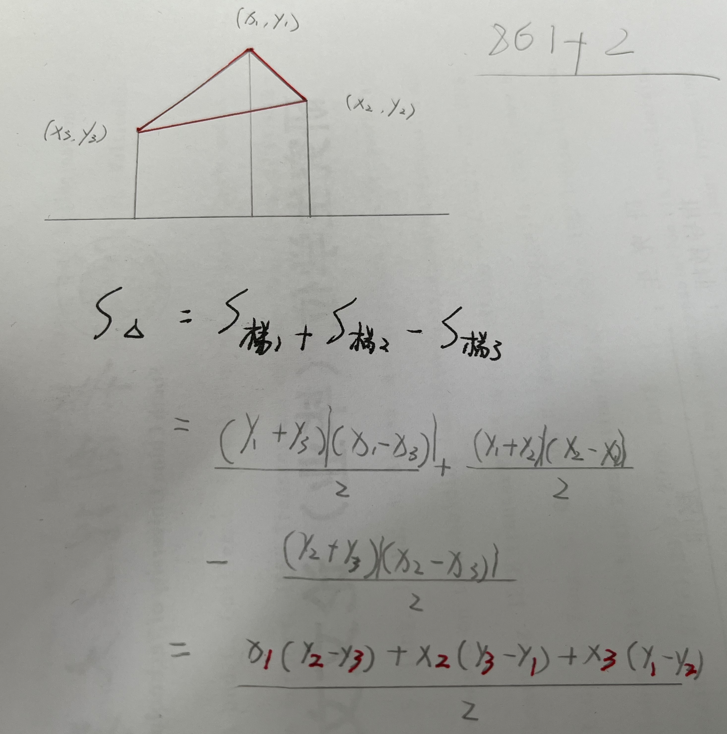 (x₁,y₁)
861+2
(x₂,y₂)
(x₃,y₃)
S△ = S梯₁ + S梯₂ - S梯₃
= (y₁+y₃)|(x₁-x₃)|/2 + (y₁+y₂)|(x₂-x₁)|/2
- (y₂+y₃)|(x₂-x₃)|/2
= x₁(y₂-y₃)+x₂(y₃-y₁)+x₃(y₁-y₂)/2